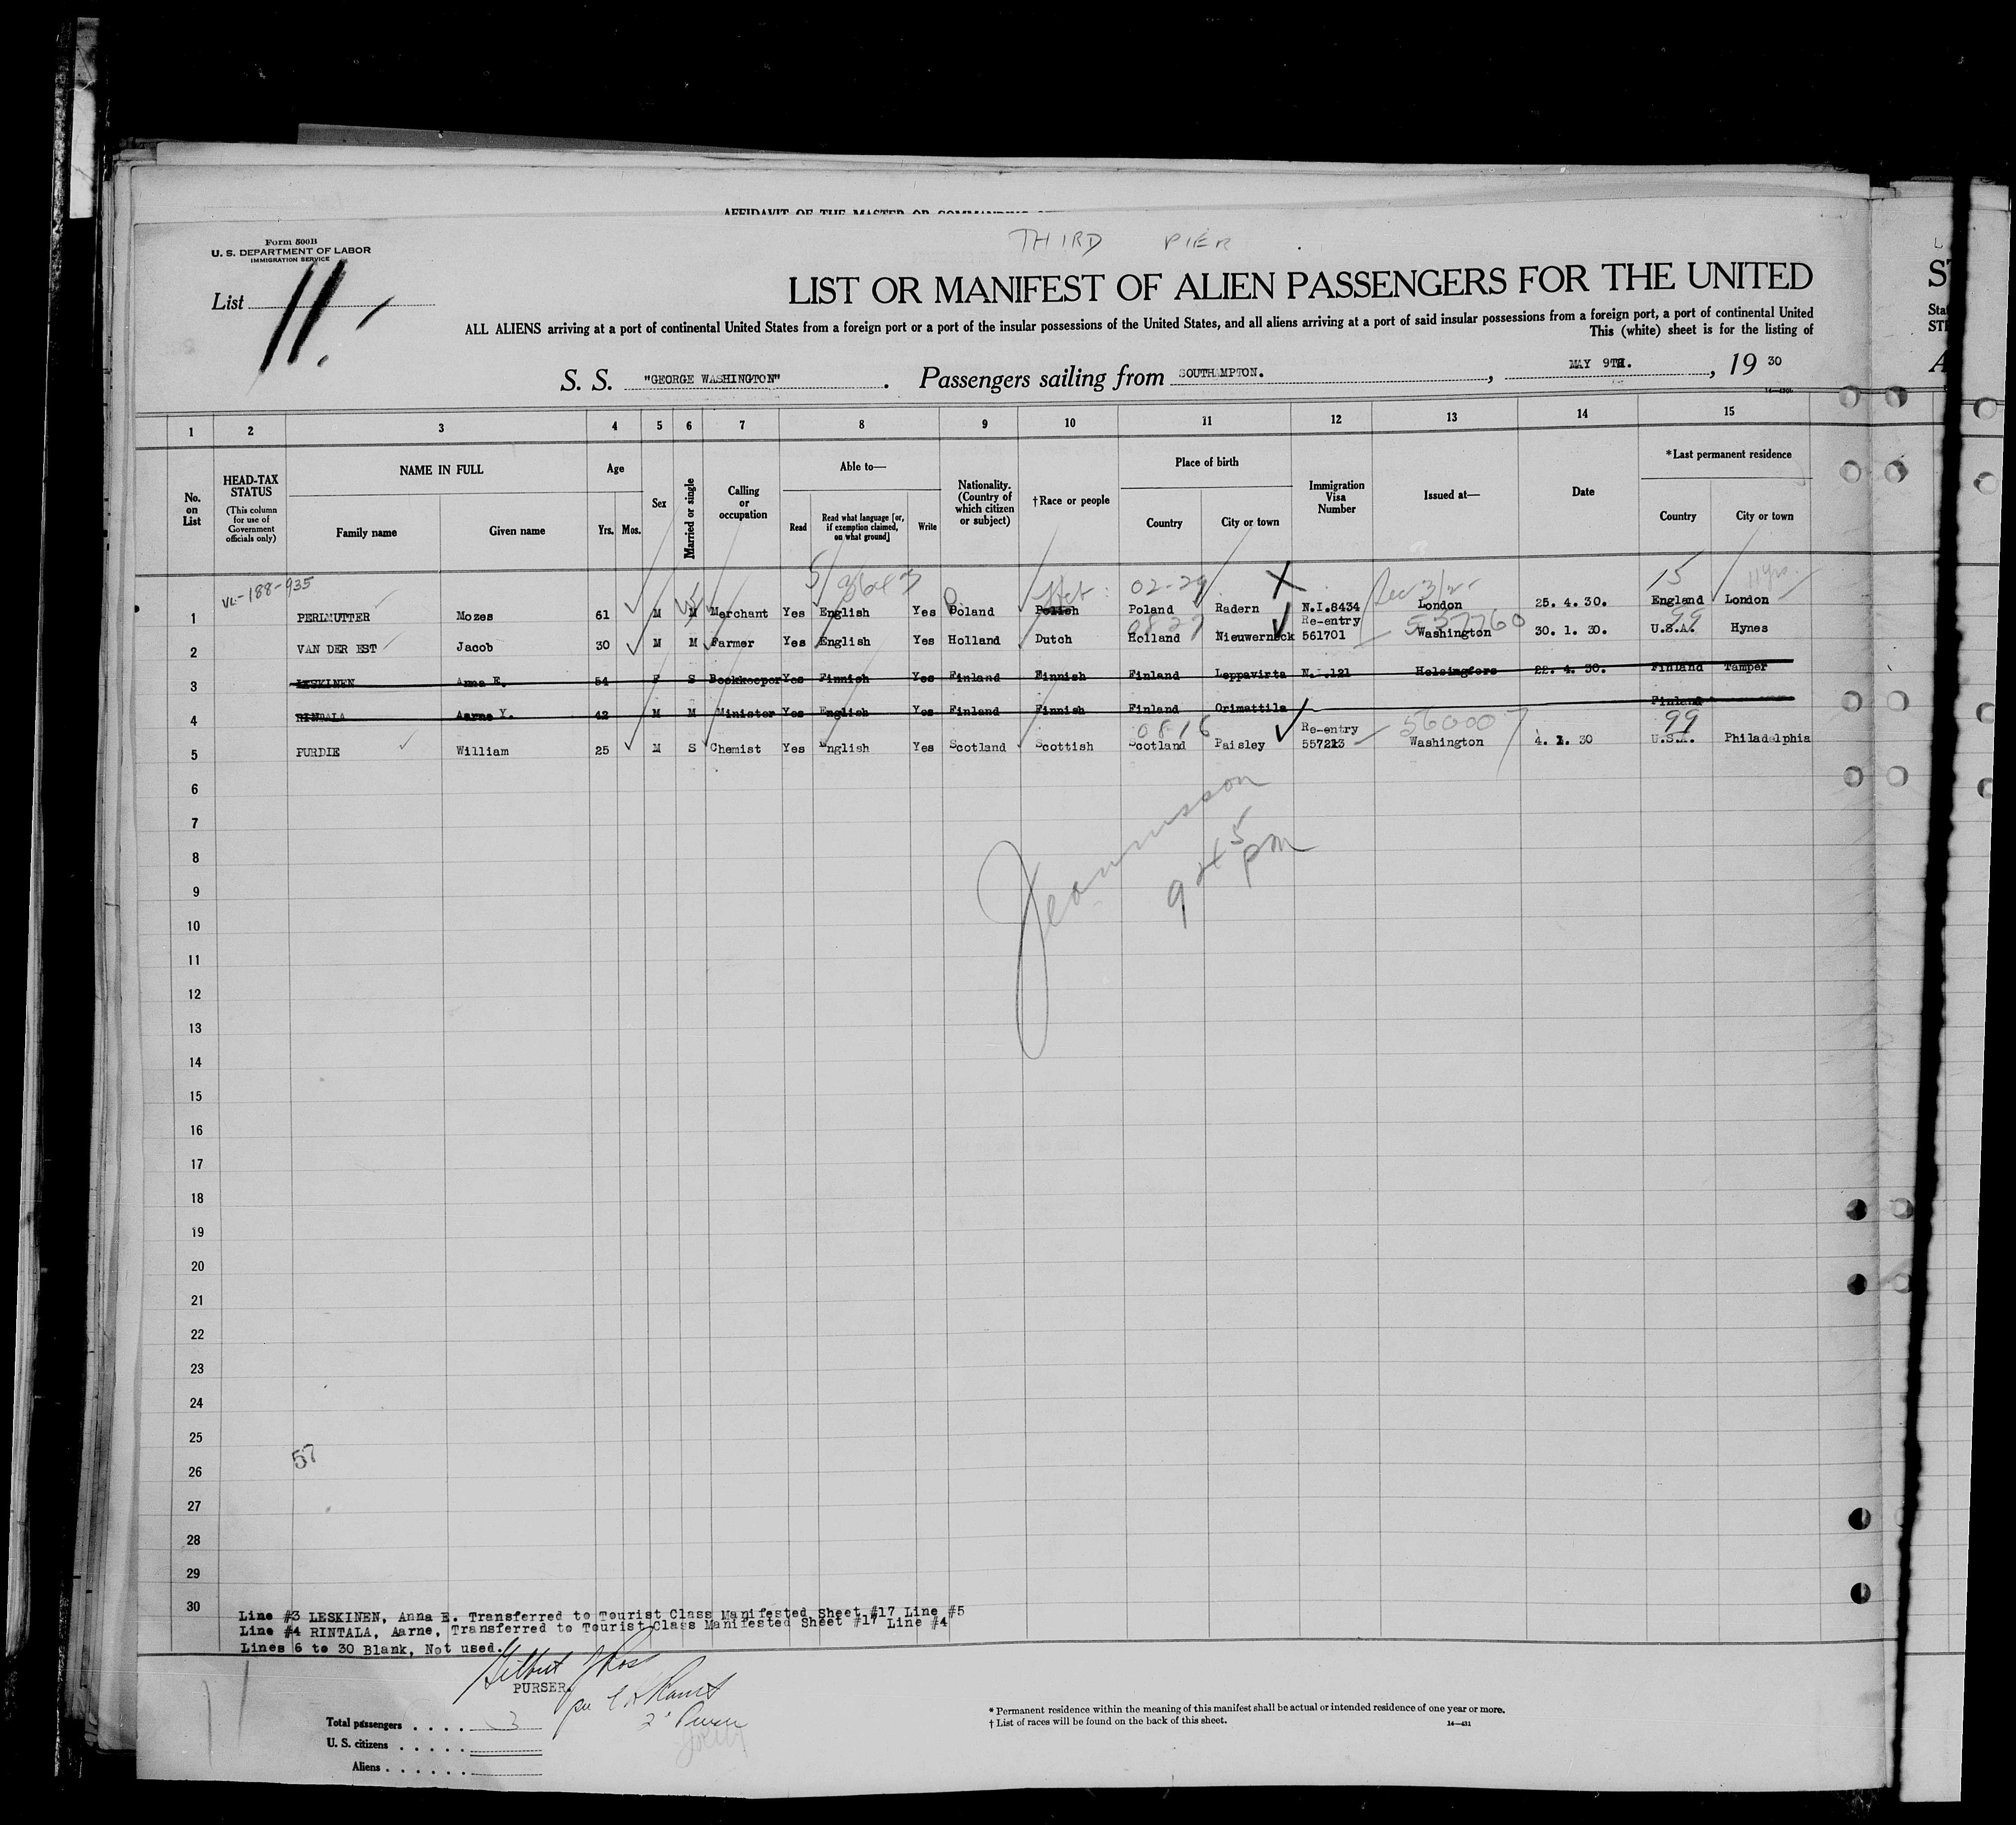 AFFIDAVIT OF THE MASTER OR COMMANDING
THIRD PIER
Form 500B
U. S. DEPARTMENT OF LABOR
IMMIGRATION SERVICE
List 11.
LIST OR MANIFEST OF ALIEN PASSENGERS FOR THE UNITED
ALL ALIENS arriving at a port of continental United States from a foreign port or a port of the insular possessions of the United States, and all aliens arriving at a port of said insular possessions from a foreign port, a port of continental United
This (white) sheet is for the listing of
S. S. "GEORGE WASHINGTON" . Passengers sailing from SOUTHAMPTON. , MAY 9TH. , 19 30
1 2 3 4 5 6 7 8 9 10 11 12 13 14 15
No. on List
HEAD-TAX STATUS
(This column for use of Government officials only)
NAME IN FULL
Family name Given name
Age
Yrs. Mos.
Sex
Married or single
Calling or occupation
Able to—
Read Read what language [or, if exemption claimed, on what ground] Write
Nationality. (Country of which citizen or subject)
†Race or people
Place of birth
Country City or town
Immigration Visa Number
Issued at—
Date
*Last permanent residence
Country City or town
VL-188-935 02-29 X 15 11 yrs.
1 PERLMUTTER Mozes 61 M M Merchant Yes English Yes Poland Polish Poland Radern N.I.8434 London 25. 4. 30. England London
0827 Re-entry 537760 99
2 VAN DER EST Jacob 30 M M Farmer Yes English Yes Holland Dutch Holland Nieuwerneck 561701 Washington 30. 1. 30. U.S.A. Hynes
3 LESKINEN Anna E. 54 F S Bookkeeper Yes Finnish Yes Finland Finnish Finland Leppavirta N.I.121 Helsingfors 22. 4. 30. Finland Tamper
4 RINTALA Aarne Y. 42 M M Minister Yes English Yes Finland Finnish Finland Orimattila Finland
0816 Re-entry 56000 99
5 PURDIE William 25 M S Chemist Yes English Yes Scotland Scottish Scotland Paisley Washington U.S.A. Philadelphia
6
7
8
9
9 45 pm
10
11
12
13
14
15
16
17
18
19
20
21
22
23
24
25
57
26
27
28
29
30
Line #3 LESKINEN, Anna E. Transferred to Tourist Class Manifested Sheet #17 Line #5
Line #4 RINTALA, Aarne, Transferred to Tourist Class Manifested Sheet #17 Line #4
Lines 6 to 30 Blank, Not used.
PURSER.
Total passengers . . . . 3
U. S. citizens . . . . .
Aliens . . . . . .
* Permanent residence within the meaning of this manifest shall be actual or intended residence of one year or more.
† List of races will be found on the back of this sheet.
14—431